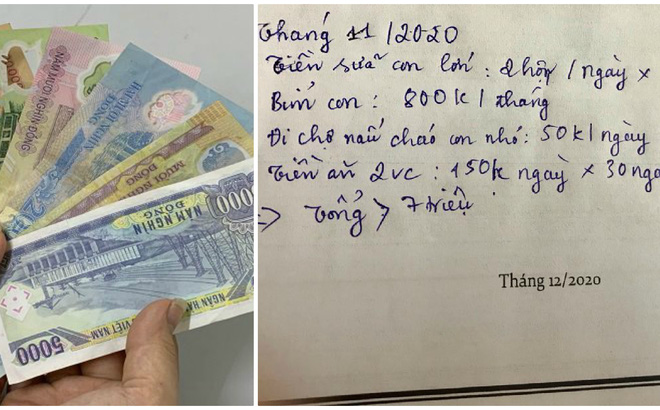 NĂM MƯƠI NGHÌN ĐỒNG
HAI MƯƠI NGHÌN
ĐỒNG
MƯỜI NGHÌN
NĂM NGHÌN
ĐỒNG
5000
VIỆT NAM
5000
Tháng 11/2020
Tiền sữa con lớn: 2 hộp / ngày ×
Bỉm con: 800k / tháng
Đi chợ nấu cháo con nhỏ: 50k / ngày
Tiền ăn 2vc: 150k ngày × 30
=> Tổng > 7 triệu
Tháng 12/2020